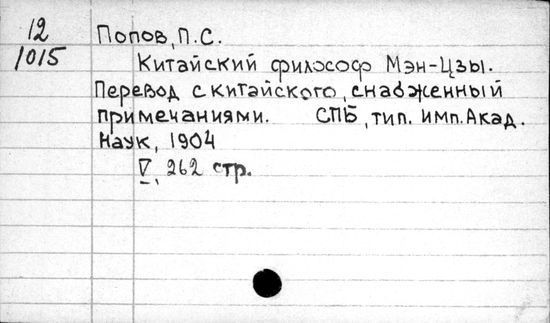 12
1015
Попов, П.С.
Китайский философ Мэн-Цзы.
Перевод с китайского, снабженный
примечаниями. СПБ, тип. Имп. Акад.
Наук, 1904
V, 262 стр.